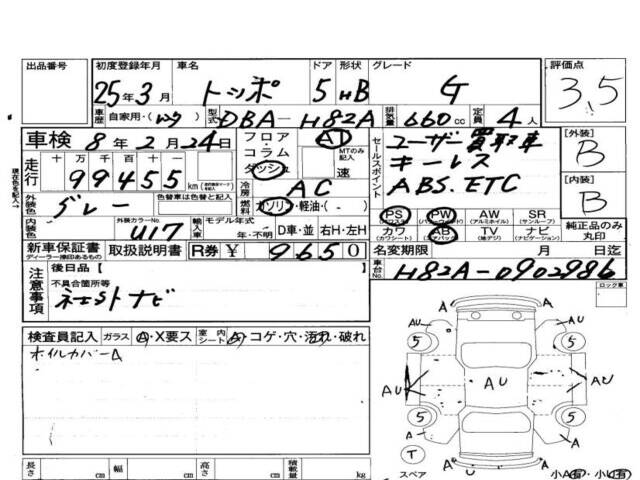 出品番号 初度登録年月 車名 ドア 形状 グレード 評価点
25年3月 トッポ 5 HB G 3.5
車歴 自家用・ 型式 DBA-H82A 排気量 660cc 定員 4人
車検 8年2月24日 フロア・コラム・ダッシュ AT MTのみ記入 速 セールスポイント ユーザー買取車 [外装] B
走行 十万千百十一 99455 km キーレス [内装] B
色替車は色替と記入 冷房 AC ABS.ETC
外装色 グレー 燃料 ガソリン・軽油・( )
内装色 外装カラーNo. U17 輸入車 モデル年式 年・不明 D車・並 右H・左H
PS (パワステ) PW (パワーウィンドウ) AW (アルミホイル) SR (サンルーフ) 純正品のみ丸印
カワ (カワシート) AB (エアバック) TV (地デジ) ナビ (ナビゲーション)
新車保証書 ディーラー捺印あるもの 取扱説明書 R券 ¥ 9650 名変期限 月 日迄
後日品[ ] 車台No. H82A-0902986
注意事項 不具合箇所等 ロック車
ナビ
検査員記入 ガラス A・X要ス 室内シート A・コゲ・穴・汚れ・破れ
ホイルカバーA
AU AU
5 5
AU AU AU
5 5
A A
T A
長さ cm 幅 cm 高さ cm 積載量 kg スペア 小A有・小U有
現在色を記入→